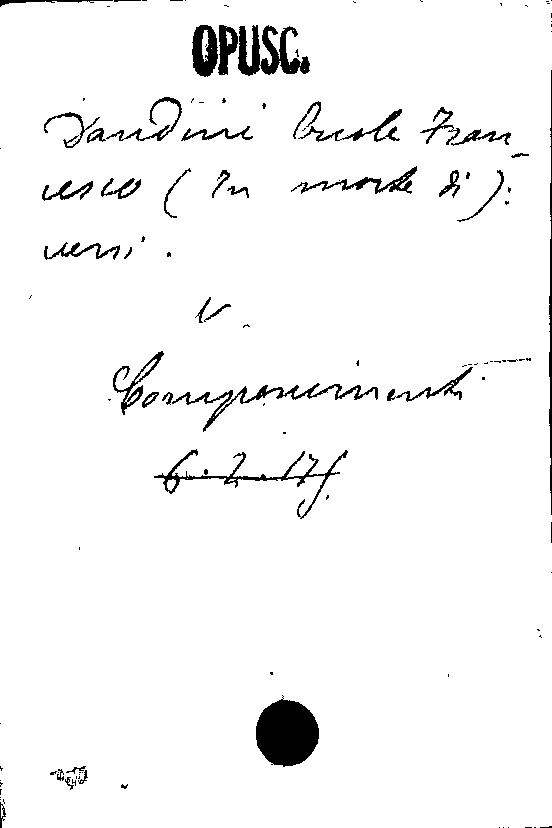 OPUSC.
Dandini Ercole Fran-
cesco (In morte di):
versi.
V.
Componimenti
6.2.175